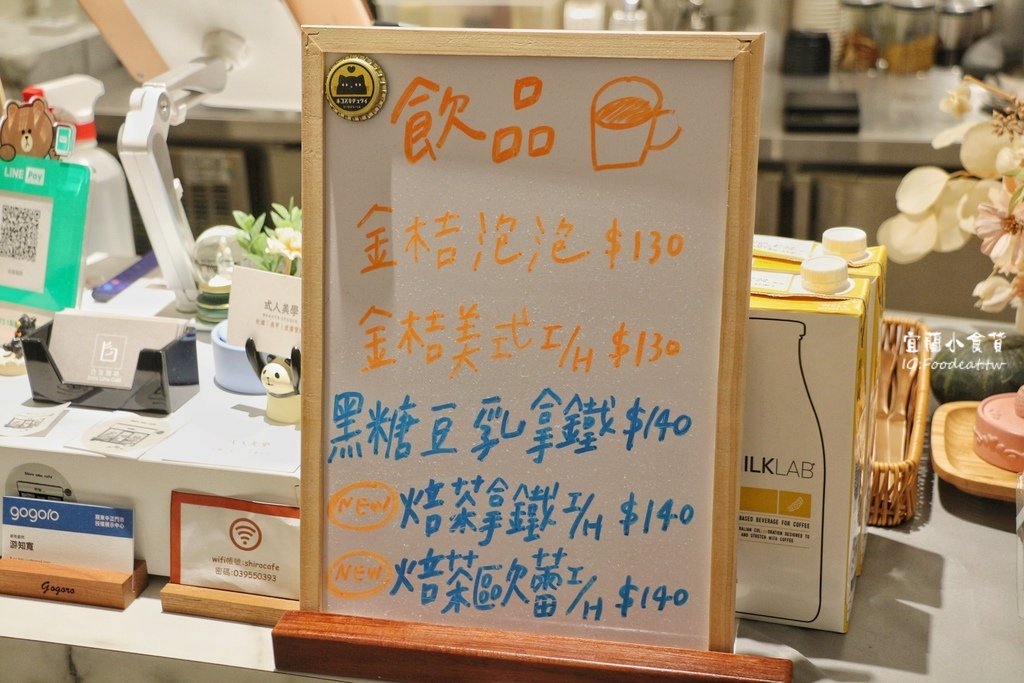 飲品
金桔泡泡 $130
金桔美式 I/H $130
黑糖豆乳拿鐵 $140
NEW 焙茶拿鐵 I/H $140
NEW 焙茶歐蕾 I/H $140
LINE Pay
式人美學
gogoro
游知寬
Gogoro
wifi帳號:shirocafe
密碼:039550393
ILKLAB
BASED BEVERAGE FOR COFFEE
AND STRETCH WITH COFFEE
宜蘭小食貨
IG:Foodeat.tw